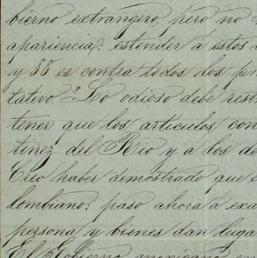 bierno extrangero, pero no
apariencia: estender a estos
y 88 es contra todos los
tativo. "Lo odioso debe
tener que los articulos con
tinez del Rio y a los de
Creo haber demostrado que
lombiano: paso ahora a exa
persona y bienes dan luga
El Gobierno mexicano